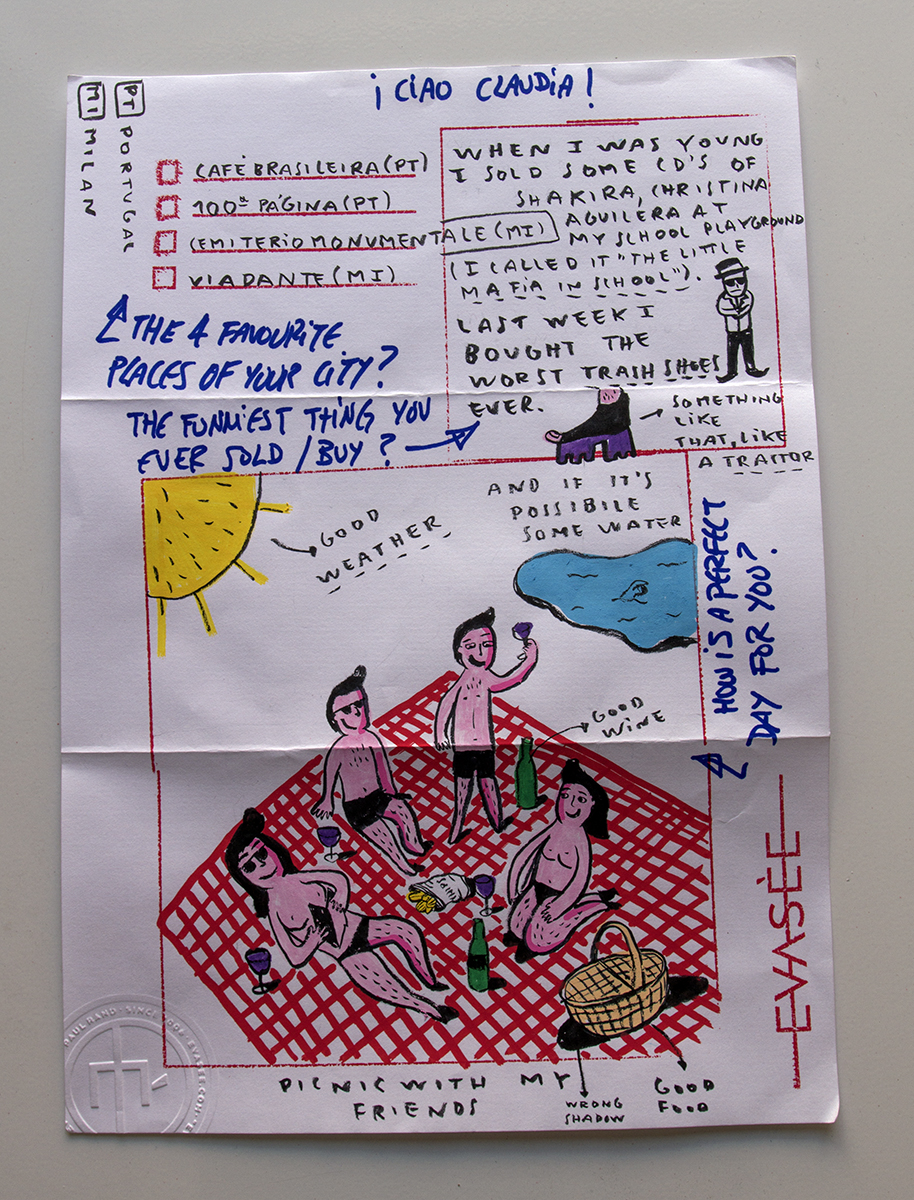 ¡ CIAO CLAUDIA !
PT PORTUGAL
MI MILAN
CAFÈ BRASILEIRA (PT)
100ª PÁGINA (PT)
CEMITERIO MONUMENTALE (MI)
VIA DANTE (MI)
THE 4 FAVOURITE
PLACES OF YOUR CITY?
WHEN I WAS YOUNG
I SOLD SOME CD'S OF
SHAKIRA, CHRISTINA
AGUILERA AT
MY SCHOOL PLAYGROUND
(I CALLED IT "THE LITTLE
MAFIA IN SCHOOL").
LAST WEEK I
BOUGHT THE
WORST TRASH SHOES
EVER.
SOMETHING
LIKE
THAT, LIKE
A TRACTOR
THE FUNNIEST THING YOU
EVER SOLD / BUY?
GOOD
WEATHER
AND IF IT'S
POSSIBILE
SOME WATER
HOW IS A PERFECT
DAY FOR YOU?
GOOD
WINE
CHIPS
EVASÈE
PICNIC WITH MY
FRIENDS
WRONG
SHADOW
GOOD
FOOD